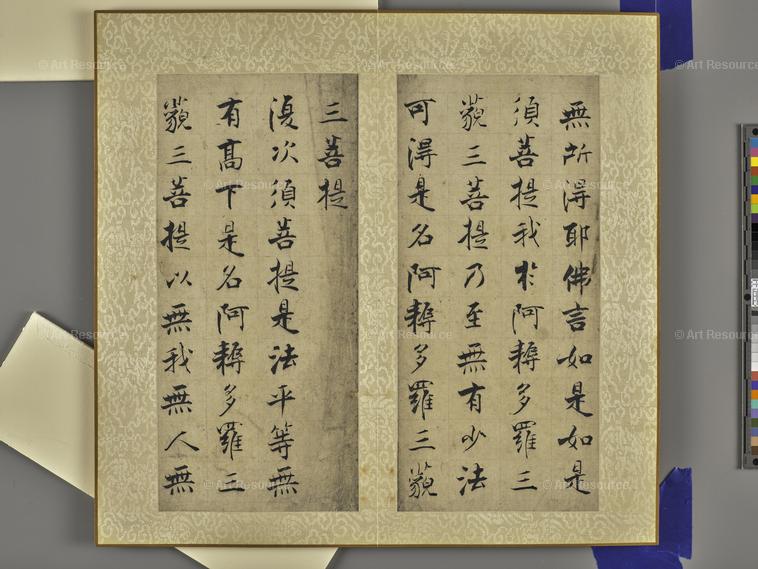 無所得耶佛言如是如是
須菩提我於阿耨多羅三
藐三菩提乃至無有少法
可得是名阿耨多羅三藐
三菩提
復次須菩提是法平等無
有高下是名阿耨多羅三
藐三菩提以無我無人無
© Art Resource
© Art Resource
© Art Resource
© Art Resource